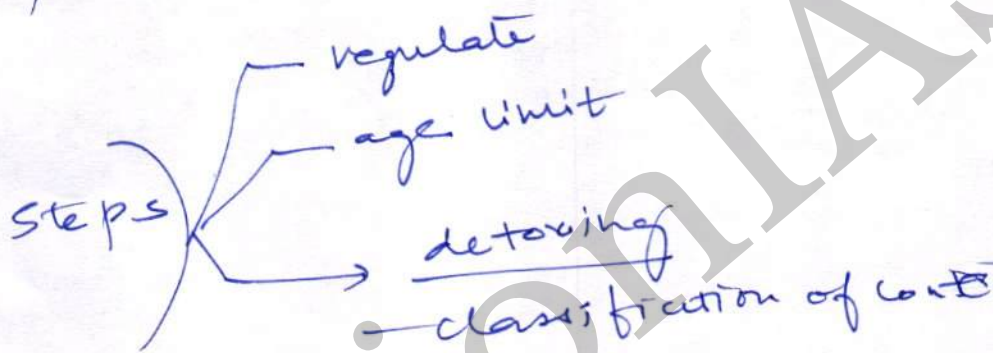 regulate
age limit
Steps
detoxing
classification of conte